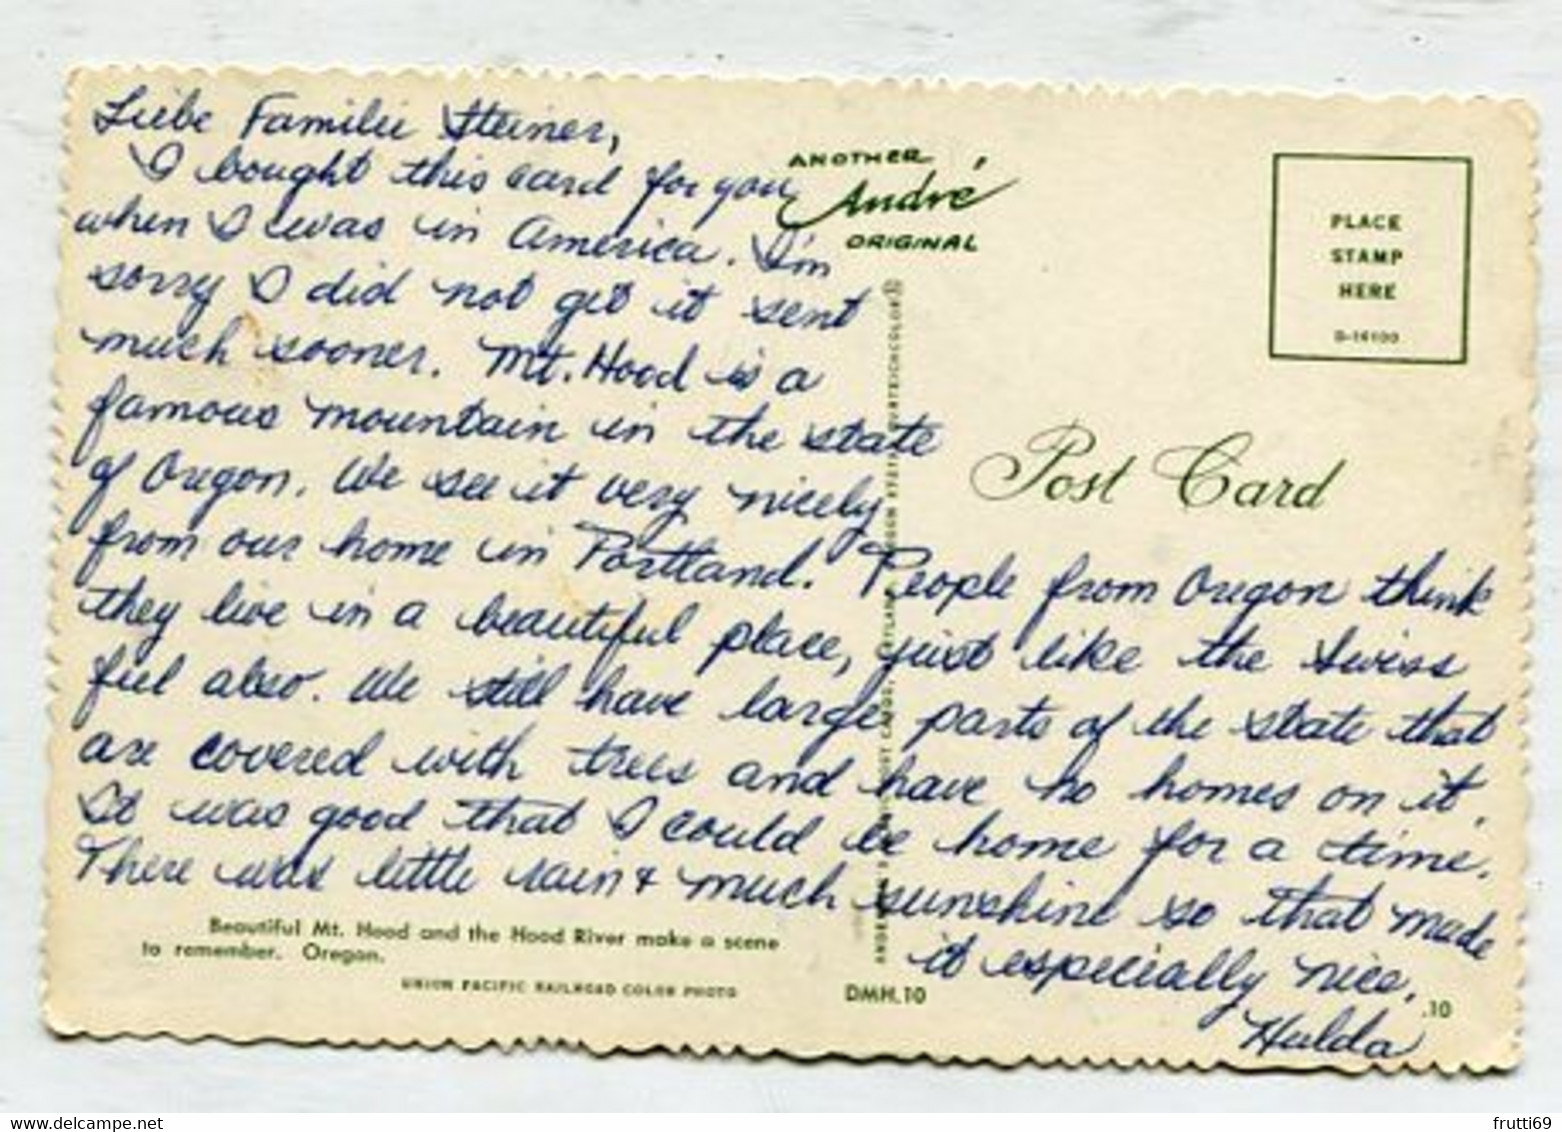 Liebe Familie Steiner,
I bought this card for you
when I was in America. I'm
sorry I did not get it sent
much sooner. Mt. Hood is a
famous mountain in the state
of Oregon. We see it very nicely
from our home in Portland. People from Oregon think
they live in a beautiful place, just like the Swiss
feel also. We still have large parts of the state that
are covered with trees and have no homes on it.
It was good that I could be home for a time.
There was little rain & much sunshine so that made
it especially nice.
Hulda
ANOTHER
André
ORIGINAL
PLACE
STAMP
HERE
D-16100
Post Card
Beautiful Mt. Hood and the Hood River make a scene
to remember. Oregon.
UNION PACIFIC RAILROAD COLOR PHOTO
DMH.10
.10
frutti69